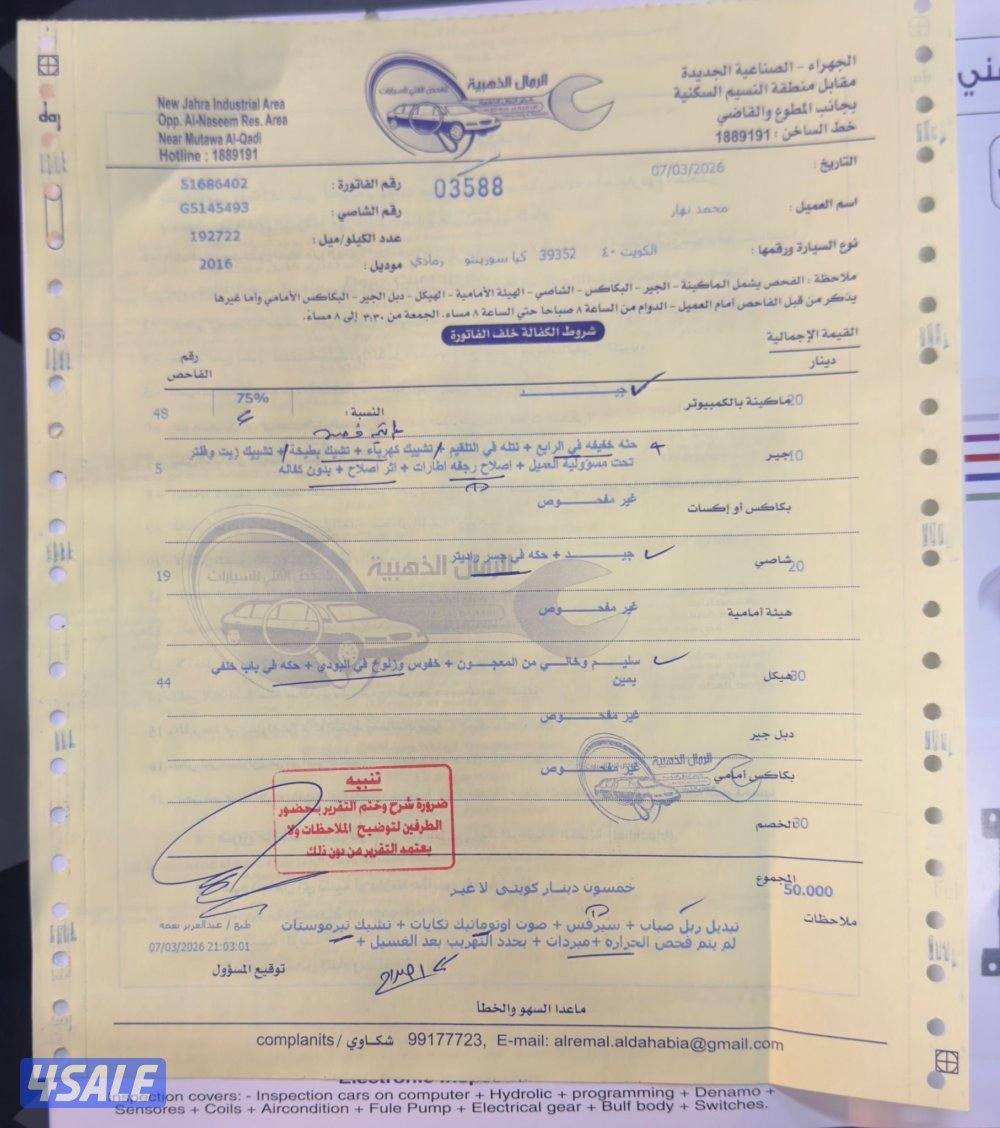 الجهراء - الصناعية الجديدة
مقابل منطقة النسيم السكنية
بجانب المطوع والقاضي
خط الساخن : 1889191
الرمال الذهبية
للفحص الفني للسيارات
New Jahra Industrial Area
Opp. Al-Naseem Res. Area
Near Mutawa Al-Qadi
Hotline : 1889191
التاريخ : 07/03/2026
03588
رقم الفاتورة : 51686402
اسم العميل : محمد نهار
رقم الشاصي : G5145493
عدد الكيلو/ميل : 192722
نوع السيارة ورقمها : الكويت ٤٠ 39352 كيا سورينتو رمادي
موديل : 2016
ملاحظة : الفحص يشمل الماكينة - الجير - البكاكس - الشاصي - الهيئة الأمامية - الهيكل - دبل الجير - البكاكس الأمامي وأما غيرها
يذكر من قبل الفاحص أمام العميل - الدوام من الساعة ٨ صباحا حتى الساعة ٨ مساء. الجمعة من ٣:٣٠ إلى ٨ مساءً.
شروط الكفالة خلف الفاتورة
القيمة الإجمالية
دينار
رقم
الفاحص
20 ماكينة بالكمبيوتر جيد
النسبة : 75% 48
10 جير حنه خفيفه في الرابع + نتله في التلقيم + تشييك كهرباء + تشيك بطيخة + تشييك زيت وفلتر
تحت مسؤولية العميل + اصلاح رجفه اطارات + اثر اصلاح + بدون كفاله 5
بكاكس أو إكسات غير مفحوص
20 شاصي جيد + حكه في جسر راديتر 19
هيئة أمامية غير مفحوص
30 هيكل سليم وخالي من المعجون + خفوس وزلوخ في البودي + حكه في باب خلفي
يمين 44
دبل جير غير مفحوص
بكاكس أمامي غير مفحوص
الرمال الذهبية
30 الخصم
تنبيه
ضرورة شرح وختم التقرير بحضور
الطرفين لتوضيح الملاحظات ولا
يعتمد التقرير من دون ذلك
المجموع 50.000 خمسون دينار كويتي لا غير
ملاحظات تبديل ربل صباب + سيرفس + صوت اوتوماتيك تكايات + تشيك تيرموستات
لم يتم فحص الحراره + مبردات + يحدد التهريب بعد الغسيل +
اصلاح
طبع / عبدالعزيز نعمه
07/03/2026 21:03:01
توقيع المسؤول
ماعدا السهو والخطأ
complanits / شكاوي 99177723, E-mail: alremal.aldahabia@gmail.com
4SALE
Inspection covers: - Inspection cars on computer + Hydrolic + programming + Denamo +
Sensores + Coils + Aircondition + Fule Pump + Electrical gear + Bulf body + Switches.